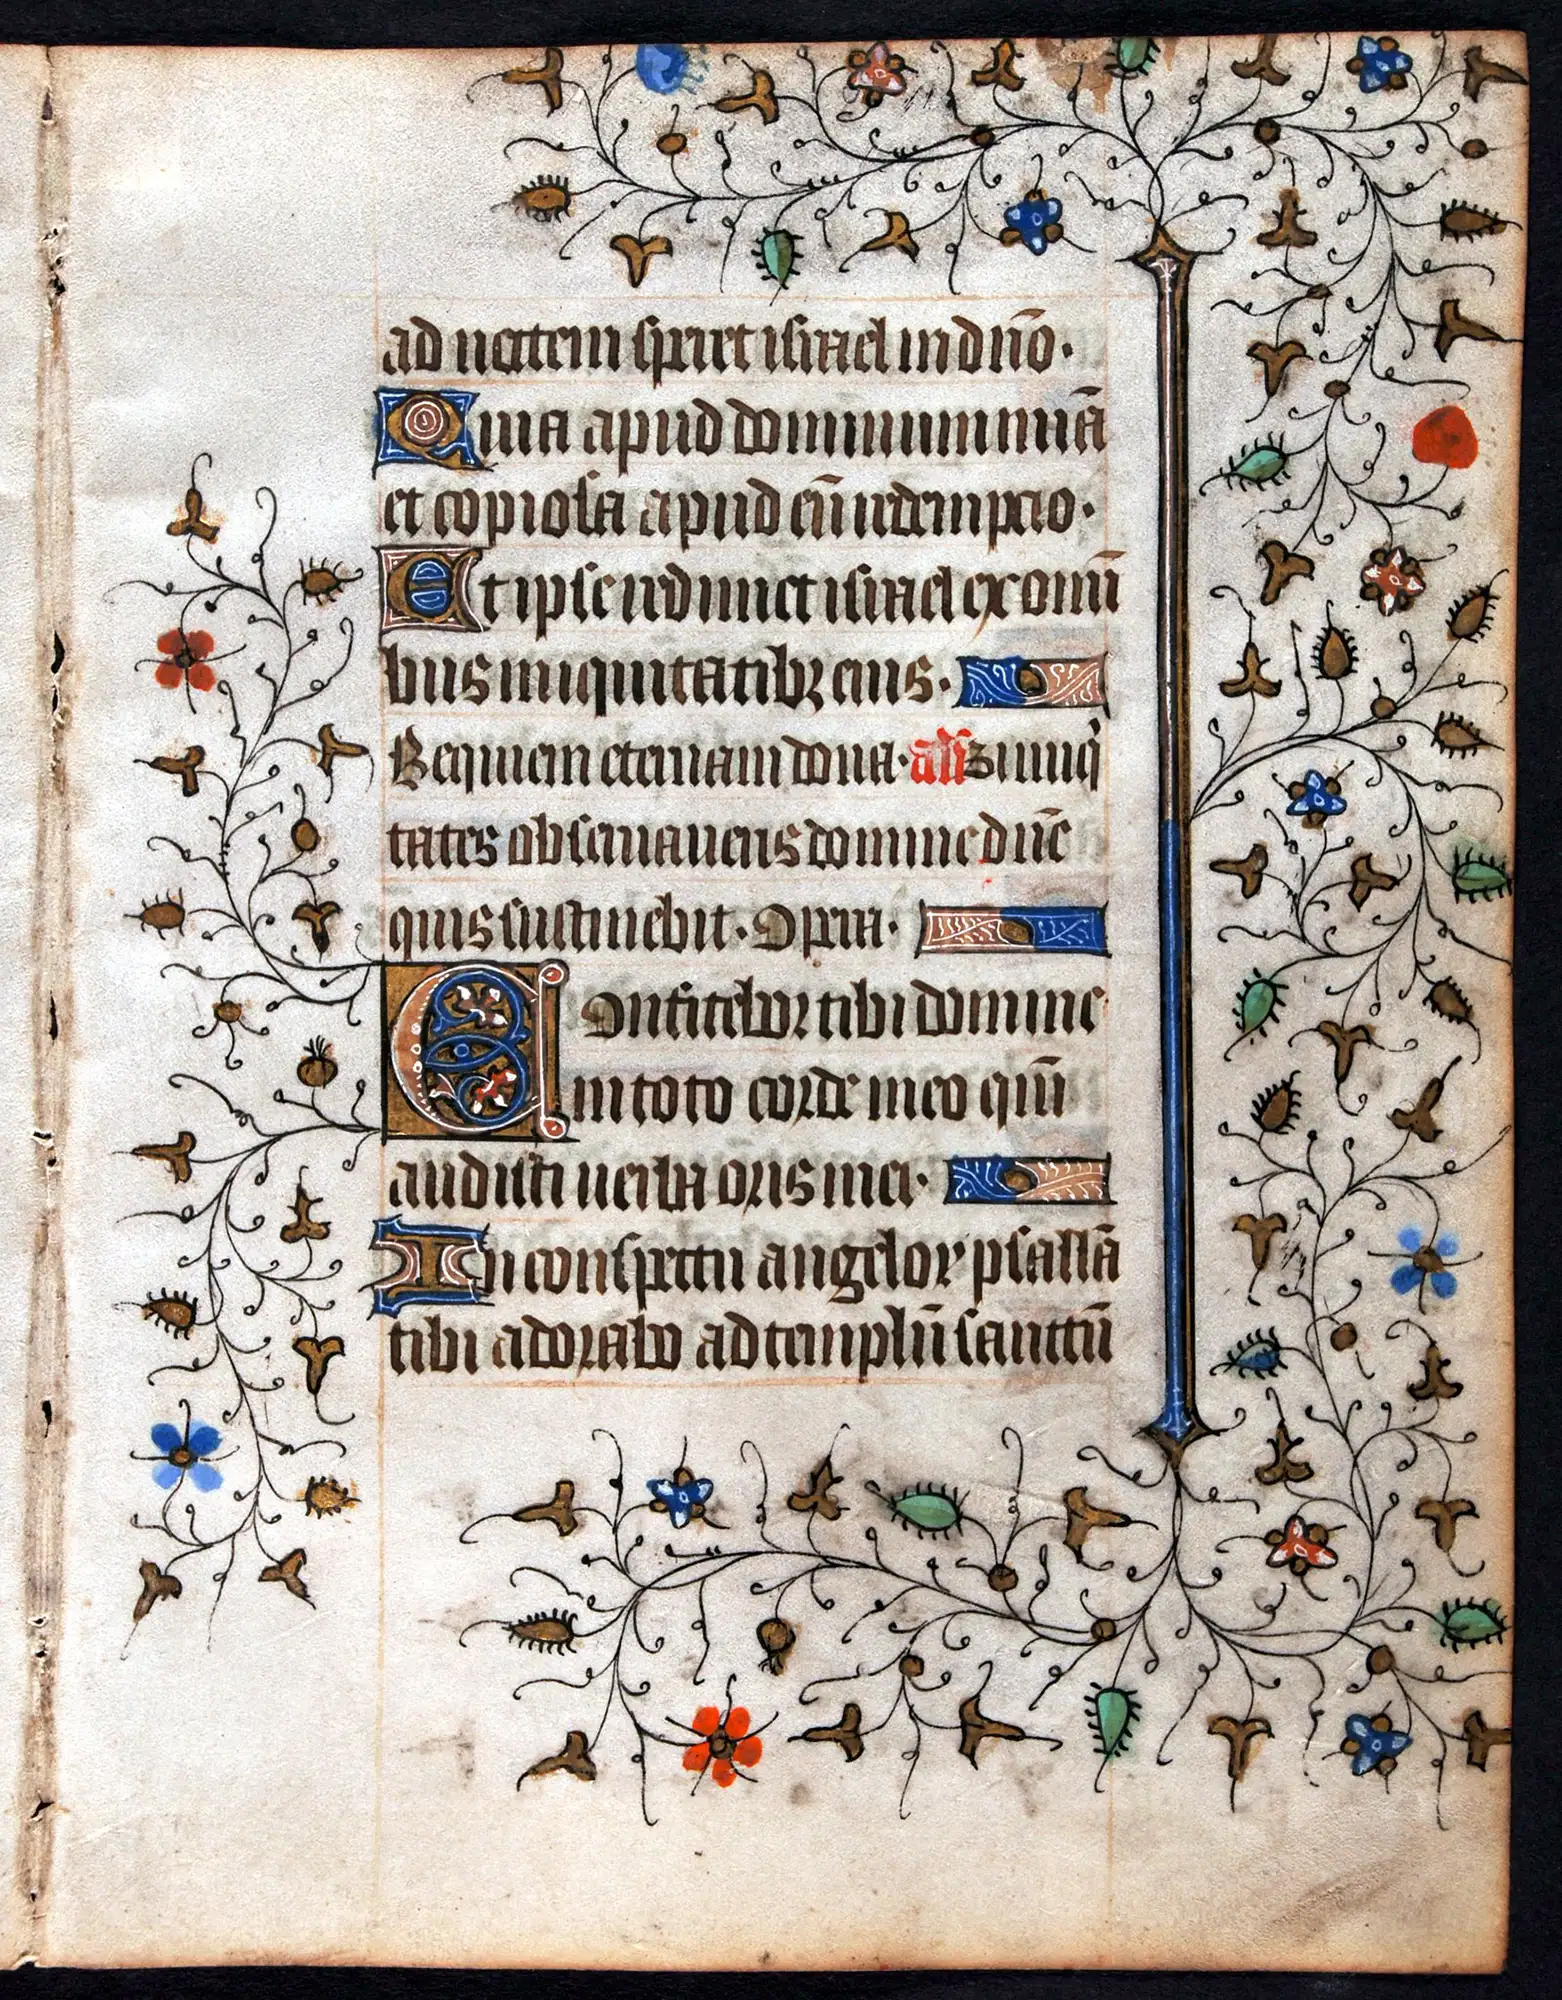 ad noctem speret israel in dño.
Quia apud dominum mīa
et copiosa apud eū redempcio.
Et ipse redimet israel ex omī
bus iniquitatibꝫ eius.
Requiem eternam dona. añ Si iniqͥ
tates observaveris domine dñe
quis sustinebit. Opera.
Confitebor tibi domine
in toto corde meo qm̄
audisti verba oris mei.
In conspectu angeloꝝ psallā
tibi adorabo ad templū sanctū